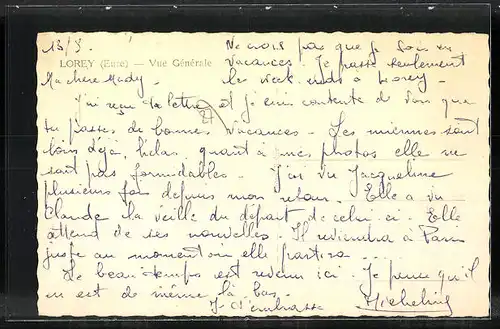 13/9.
Ne crois pas que je sois en
LOREY (Eure) — Vue Générale
vacances. Je passe seulement
Ma chère Mady.
les week-ends à Lorey.
J'ai reçu ta lettre et je suis contente de voir que
tu passes de bonnes vacances. Les miennes sont
loin déjà, hélas quant à mes photos elle ne
sont pas formidables. J'ai vu Jacqueline
plusieurs fois depuis mon retour. Elle a vu
Claude la veille du départ de celui-ci. Elle
attend de ses nouvelles. Il reviendra à Paris
juste au moment où elle partira ...
Le beau temps est revenu ici. Je pense qu'il
en est de même là bas.
Je t'embrasse
Micheline